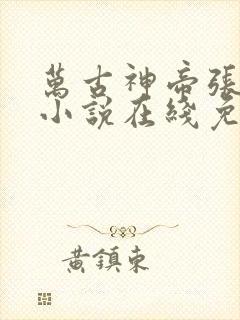 萬古神帝張
小說在綫免
黃鎮東